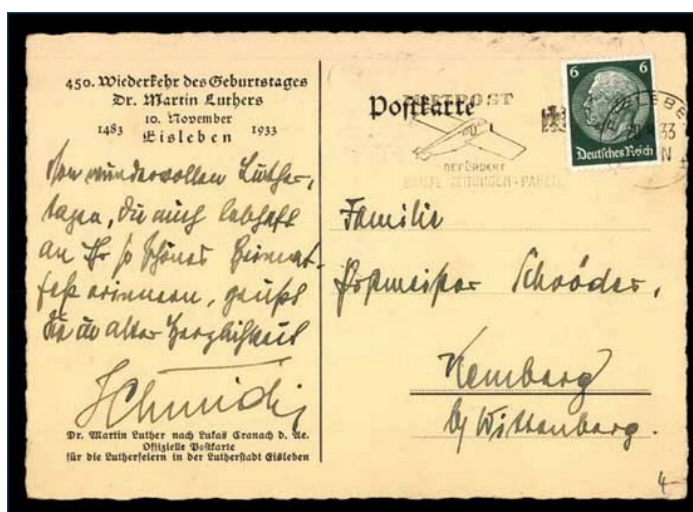 450. Wiederkehr des Geburtstages
Dr. Martin Luthers
10. November
1483 1933
Eisleben
Von wundervollen Luther-
tagen, die mich lebhaft
an Ihr so schönes Heimat-
fest erinnern, grüßt
Sie in alter Herzlichkeit
Schmidt
Dr. Martin Luther nach Lukas Cranach d. Ae.
Offizielle Postkarte
für die Lutherfeiern in der Lutherstadt Eisleben
Postkarte
LUFTPOST
BEFÖRDERT
BRIEFE · ZEITUNGEN · PAKETE
6 6
Deutsches Reich
33
Familie
Postmeister Schröder,
Kemberg
by Wittenberg.
4